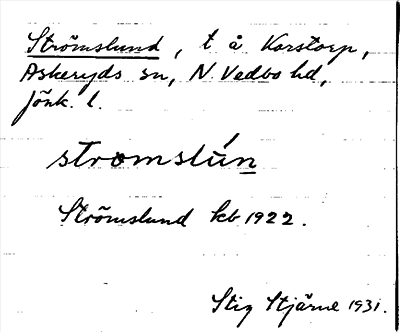 Strömslund, t å Korstorp,
Askeryds sn, N Vedbo hd,
Jönk. l.
stromslún
Strömslund kb 1922.
Stig Stjärne 1931.